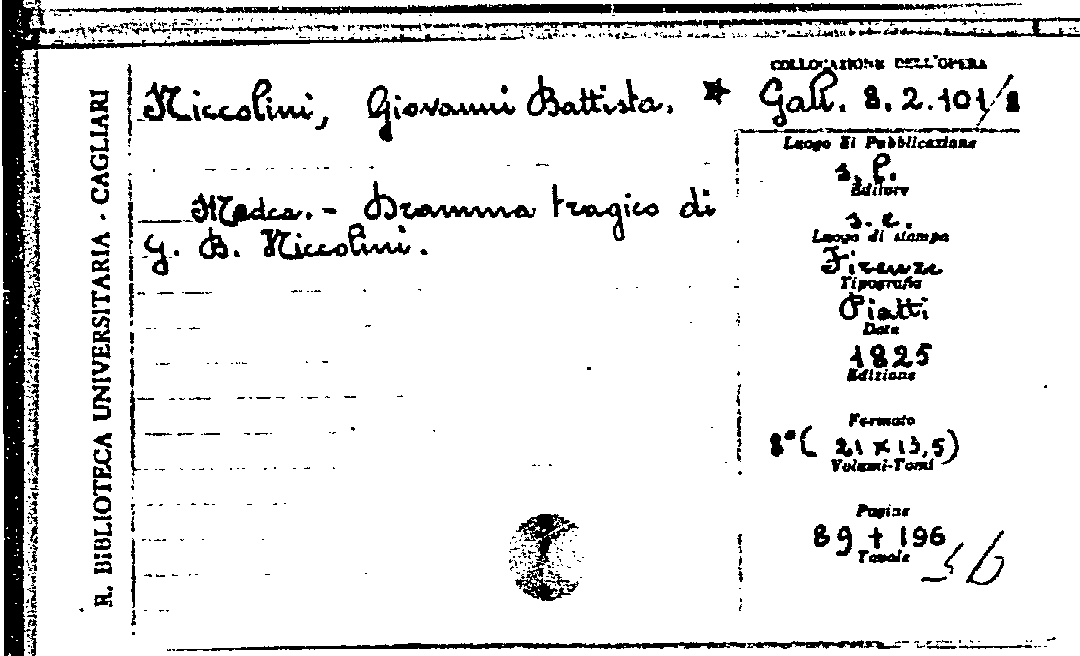 R. BIBLIOTECA UNIVERSITARIA - CAGLIARI
Niccolini, Giovanni Battista. *
Medea. - Dramma tragico di
G. B. Niccolini.
COLLOCAZIONE DELL'OPERA
Gall. 8. 2. 101/8
Luogo di Pubblicazione
s. l.
Editore
s. e.
Luogo di stampa
Firenze
Tipografia
Piatti
Data
1825
Edizione
Formato
8° ( 21 x 13,5)
Volumi-Tomi
Pagine
89 + 196
Tavole